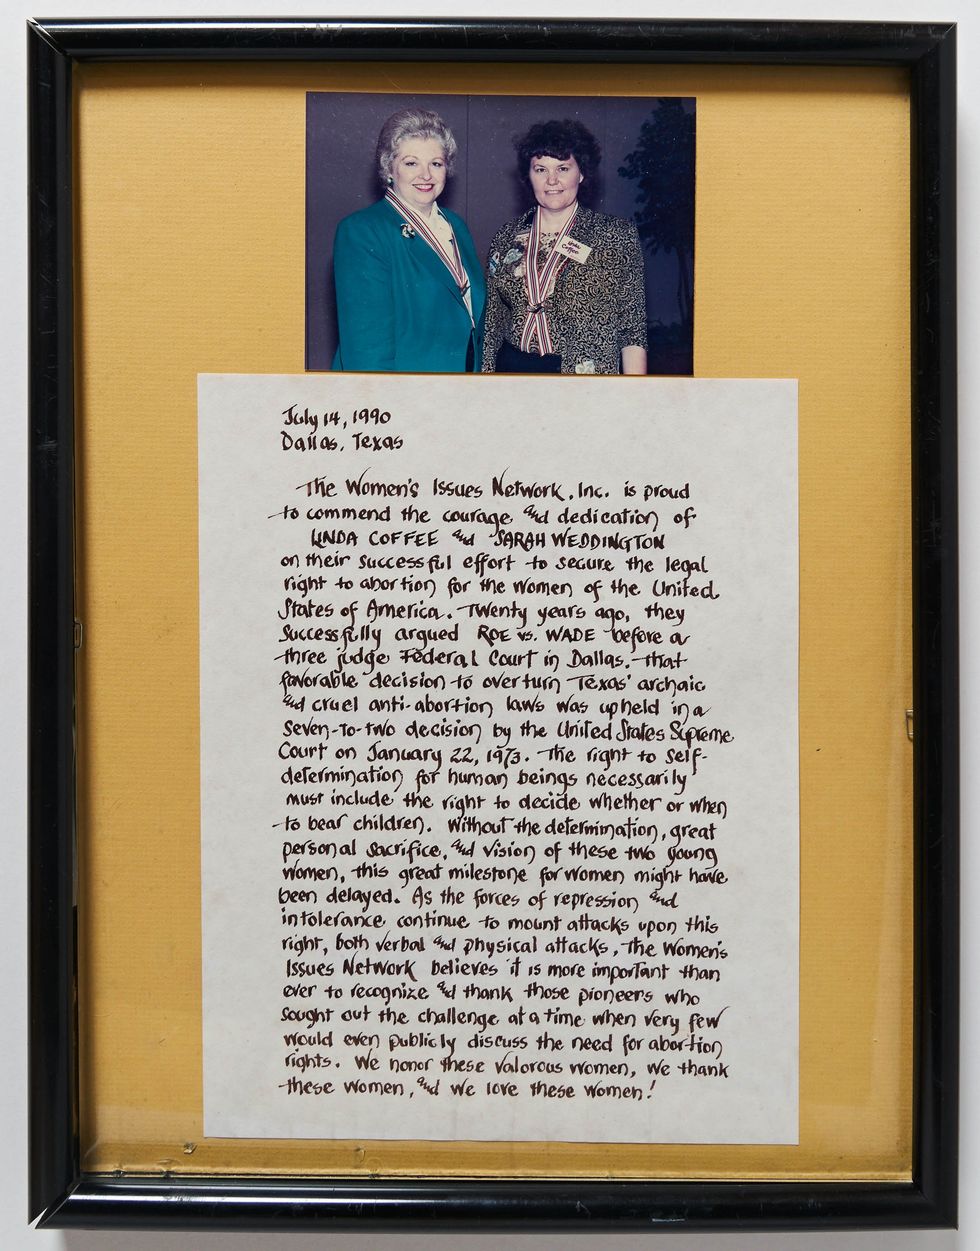 Linda
Coffee
July 14, 1990
Dallas, Texas
The Women's Issues Network, Inc. is proud
to commend the courage and dedication of
LINDA COFFEE and SARAH WEDDINGTON
on their successful effort to secure the legal
right to abortion for the women of the United
States of America. Twenty years ago, they
successfully argued ROE vs. WADE before a
three judge Federal Court in Dallas. That
favorable decision to overturn Texas' archaic
and cruel anti-abortion laws was upheld in a
seven-to-two decision by the United States Supreme
Court on January 22, 1973. The right to self-
determination for human beings necessarily
must include the right to decide whether or when
to bear children. Without the determination, great
personal sacrifice, and vision of these two young
women, this great milestone for women might have
been delayed. As the forces of repression and
intolerance continue to mount attacks upon this
right, both verbal and physical attacks, the Women's
Issues Network believes it is more important than
ever to recognize and thank those pioneers who
sought out the challenge at a time when very few
would even publicly discuss the need for abortion
rights. We honor these valorous women, we thank
these women, and we love these women!